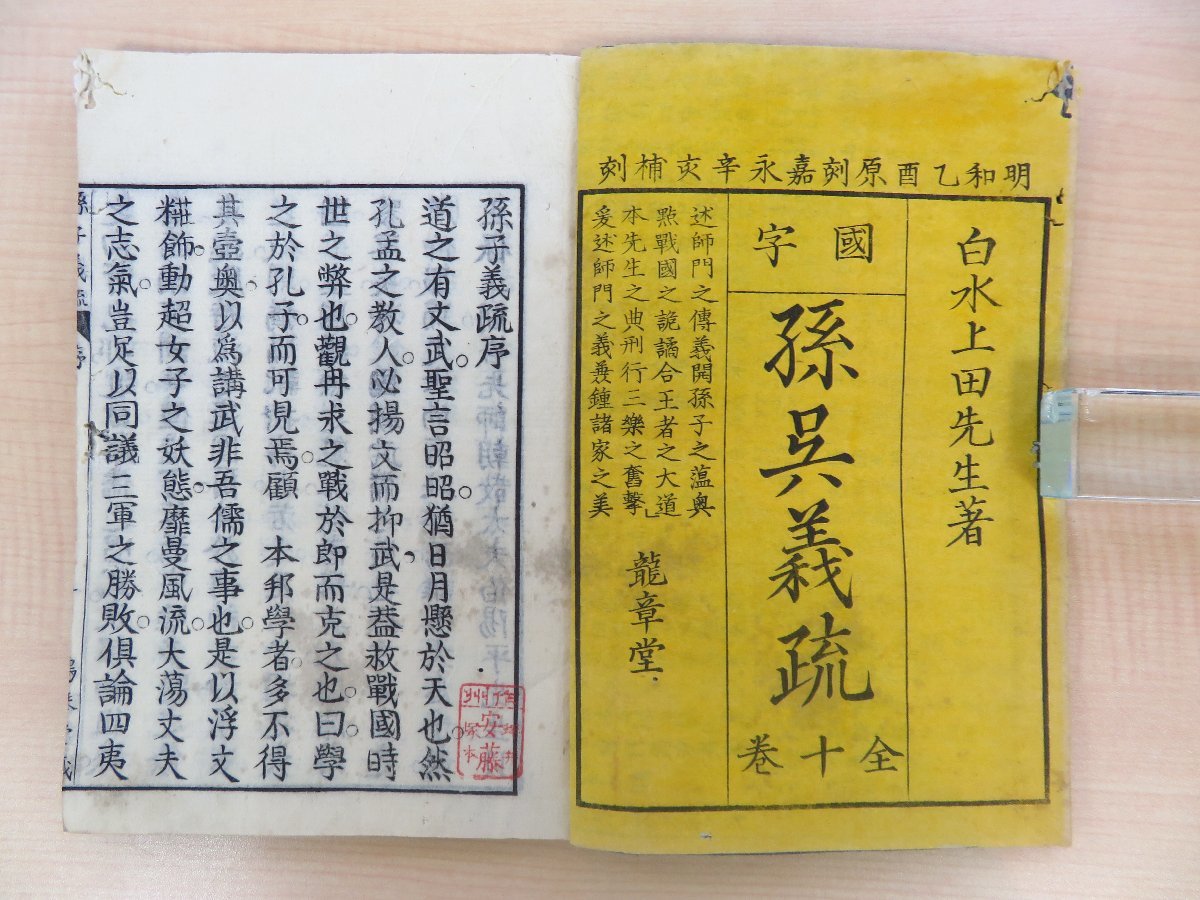 明和乙酉原刻嘉永辛亥補刻
白水上田先生著
國字
孫吳義疏
全十卷
述師門之傳義開孫子之薀奧
點戰國之詭譎合王者之大道
本先生之典刑行三樂之奮擊
爰述師門之義兼鍾諸家之美
龍章堂
孫子義疏序
道之有文武聖言昭昭猶日月懸於天也然
孔孟之教人必揚文而抑武是葢救戰國時
世之弊也觀冉求之戰於郎而克之也曰學
之於孔子而可見焉顧 本邦學者多不得
其壺奧以爲講武非吾儒之事也是以浮文
糚飾動超女子之妖態靡曼風流大蕩丈夫
之志氣豈足以同議三軍之勝敗俱論四夷
安藤